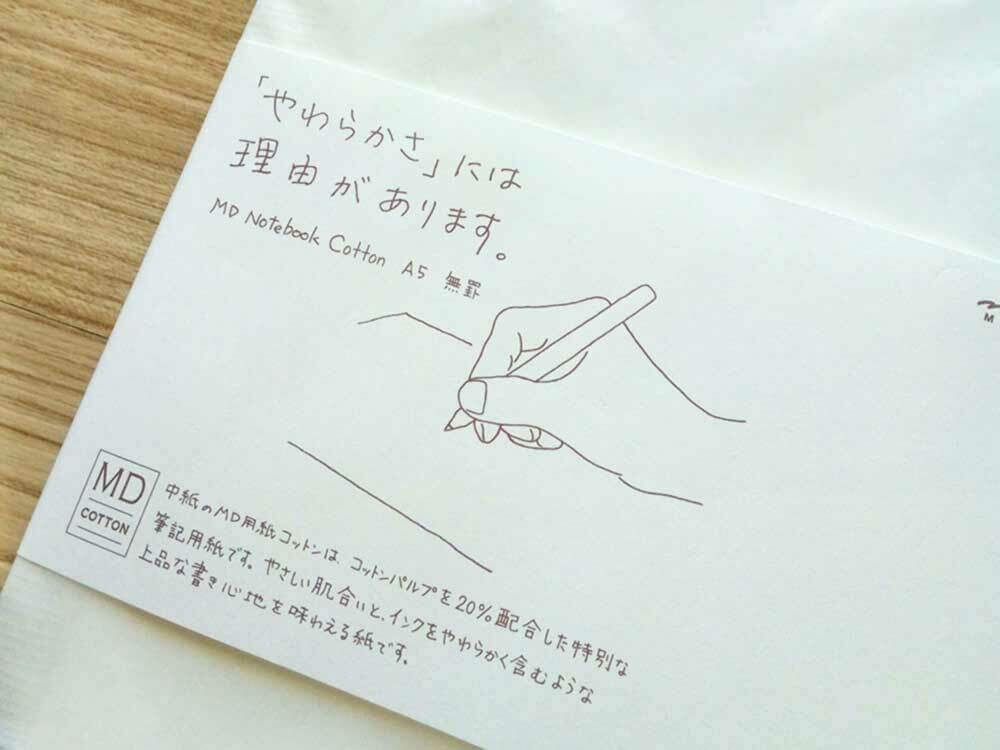 「やわらかさ」には
理由があります。
MD Notebook Cotton A5 無罫
M
MD
COTTON
中紙のMD用紙コットンは、コットンパルプを20%配合した特別な
筆記用紙です。やさしい肌合いと、インクをやわらかく含むような
上品な書き心地を味わえる紙です。